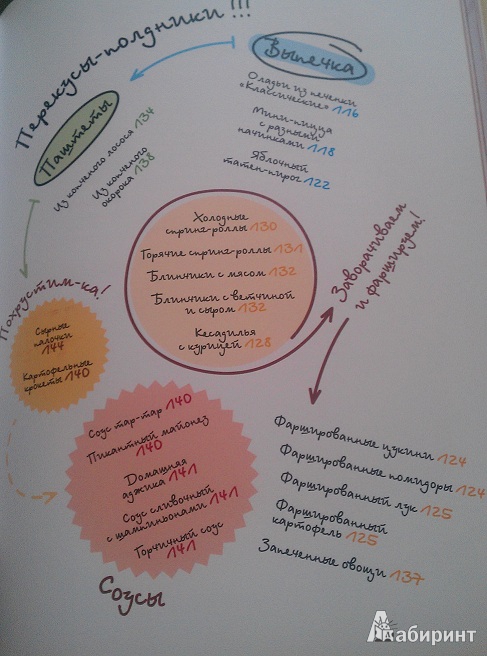 Перекусы-полдники!!!
Выпечка
Оладьи из печенки
«Классические» 116
Мини-пицца
с разными
начинками 118
Яблочный
татен-пирог 122
Паштеты
Из копченого лосося 134
Из копченого
окорока 138
Холодные
спринг-роллы 130
Горячие спринг-роллы 131
Блинчики с мясом 132
Блинчики с ветчиной
и сыром 132
Кесадилья
с курицей 128
Заворачиваем
и фаршируем!
Похрустим-ка!
Сырные
палочки
144
Картофельные
крокеты 140
Соус тар-тар 140
Пикантный майонез
140
Домашняя
аджика 141
Соус сливочный
с шампиньонами 141
Горчичный соус
141
Соусы
Фаршированные цукини 124
Фаршированные помидоры 124
Фаршированный лук 125
Фаршированный
картофель 125
Запеченные овощи 137
Лабиринт